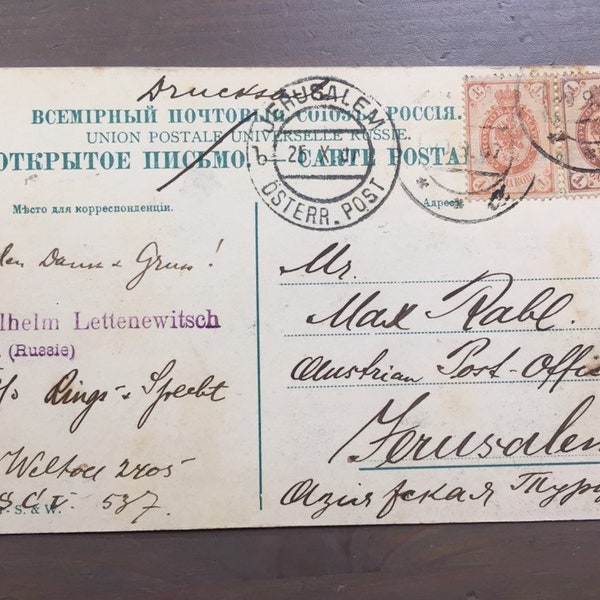 Drucksache
ВСЕМІРНЫЙ ПОЧТОВЫЙ СОЮЗЪ. РОССІЯ.
UNION POSTALE UNIVERSELLE RUSSIE.
ОТКРЫТОЕ ПИСЬМО. CARTE POSTA
JERUSALEM
25 X 07
ÖSTERR. POST
Мѣсто для корреспонденціи.
Адрес
len Dank & Gruss!
lhelm Lettenewitsch
(Russie)
Rings & Sprecht
Weltall 2405
S C I 537.
S. & W.
Mr.
Max Rabl.
Austrian Post-Offi
Jerusalem
Азіятская Тур